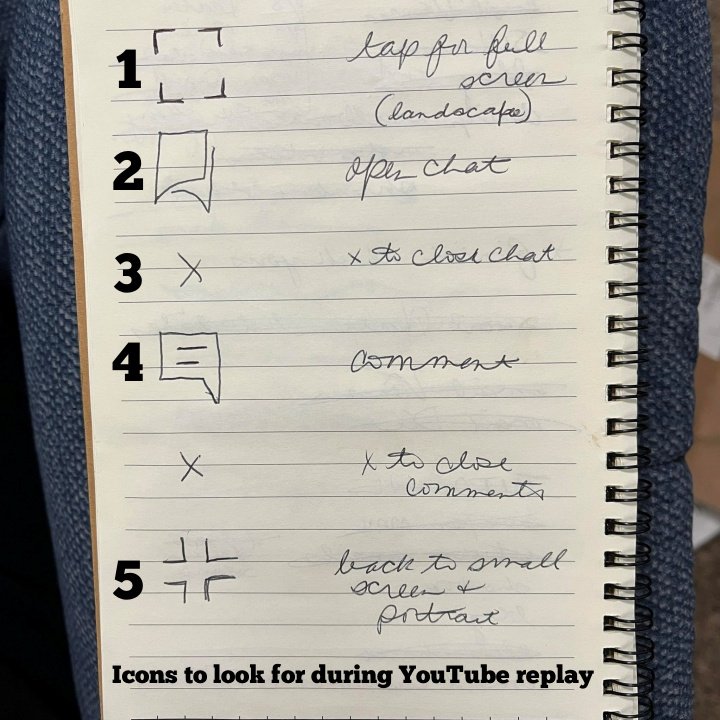 1 tap for full
screen
(landscape)
2 open chat
3 x x to close chat
4 comment
x x to close
comments
5 back to small
screen +
portrait
Icons to look for during YouTube replay